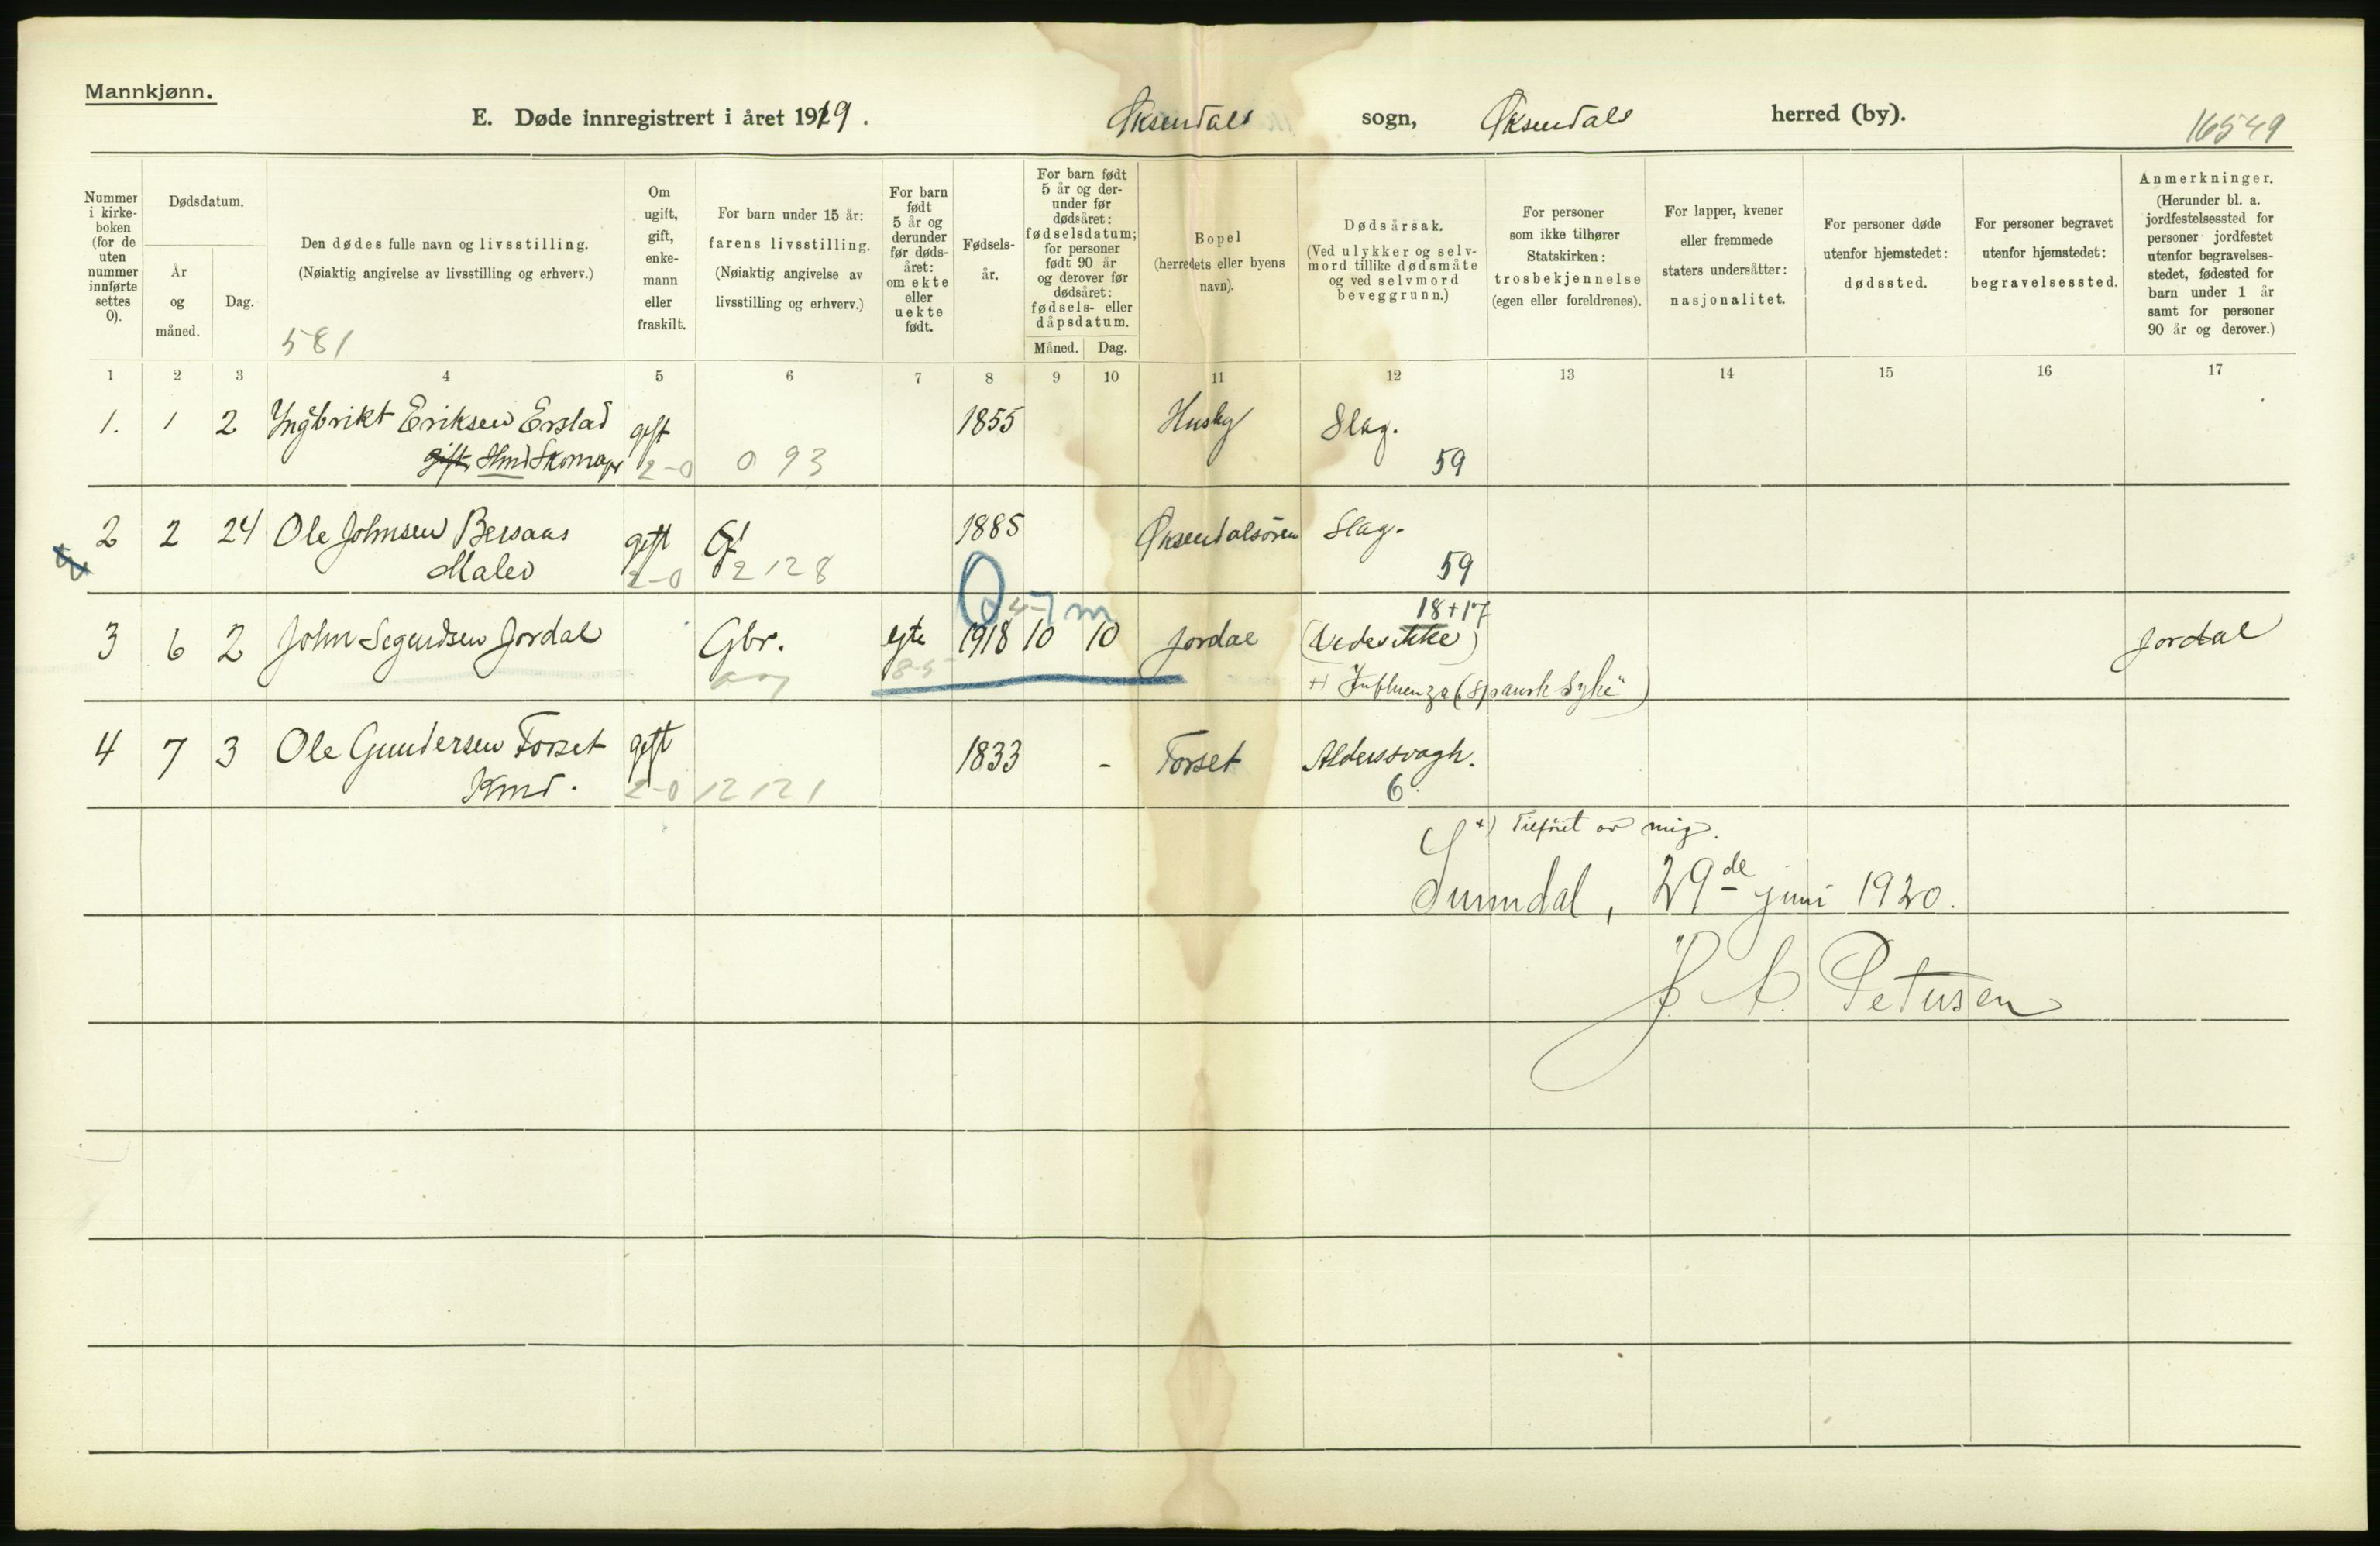 Mannkjønn.
E. Døde innregistrert i året 1919. Øksendals sogn, Øksendals herred (by). 16549
Nummer i kirke-boken (for de uten nummer innførte settes 0).
Dødsdatum.
År og måned.
Dag.
Den dødes fulle navn og livsstilling.
(Nøiaktig angivelse av livsstilling og erhverv.)
581
Om ugift, gift, enke-mann eller fraskilt.
For barn under 15 år: farens livsstilling. (Nøiaktig angivelse av livsstilling og erhverv.)
For barn født 5 år og derunder før døds-året: om ekte eller uekte født.
Fødsels-år.
For barn født 5 år og der-under før dødsåret: fødselsdatum; for personer født 90 år og derover før dødsåret: fødsels- eller dåpsdatum.
Måned. Dag.
Bopel (herredets eller byens navn).
Dødsårsak. (Ved ulykker og selv-mord tillike dødsmåte og ved selvmord beveggrunn.)
For personer som ikke tilhører Statskirken: trosbekjennelse (egen eller foreldrenes).
For lapper, kvener eller fremmede staters undersåtter: nasjonalitet.
For personer døde utenfor hjemstedet: dødssted.
For personer begravet utenfor hjemstedet: begravelsessted.
Anmerkninger. (Herunder bl. a. jordfestelsessted for personer jordfestet utenfor begravelses-stedet, fødested for barn under 1 år samt for personer 90 år og derover.)
1 2 3 4 5 6 7 8 9 10 11 12 13 14 15 16 17
1. 1 2 Ingbrikt Eriksen Erstad gift 1855 Husby Slag.
gift, Hmd Skomager 2-0 0 93 59
2 2 24 Ole Johnsen Bersaas gift 1885 Øksendalsøren Slag.
Maler 2-0 2 128 59
18+17
3 6 2 John Segurdsen Jordal Gbr. egte 1918 10 10 Jordal (Vedes ikke) Jordal
+) Influenza ("spansk syke")
4 7 3 Ole Gundersen Forset gift 1833 - Forset Alderssvagh.
Kmd. 2-0 12 121 6
+) Tilføiet av mig.
Sunndal, 29de juni 1920.
Petersen